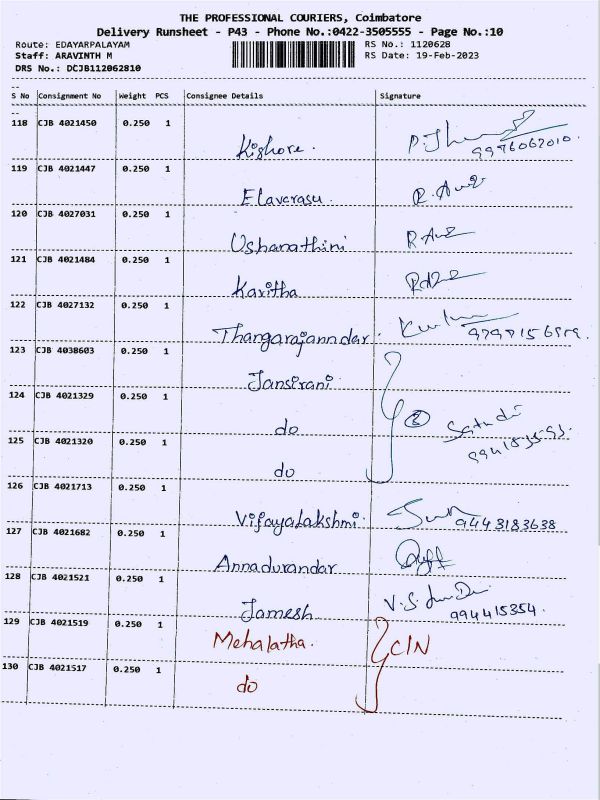 THE PROFESSIONAL COURIERS, Coimbatore
Delivery Runsheet - P43 - Phone No.:0422-3505555 - Page No.:10
Route: EDAYARPALAYAM RS No.: 1120628
Staff: ARAVINTH M RS Date: 19-Feb-2023
DRS No.: DCJB112062810
S No Consignment No Weight PCS Consignee Details Signature
118 CJB 4021450 0.250 1
Kishore. 9976062010.
119 CJB 4021447 0.250 1
Elavarasu
120 CJB 4027031 0.250 1
Usharathini
121 CJB 4021484 0.250 1
Kavitha
122 CJB 4027132 0.250 1
Thangarajanndar.
123 CJB 4038603 0.250 1
Jansirani
124 CJB 4021329 0.250 1
do ②
125 CJB 4021320 0.250 1
do
126 CJB 4021713 0.250 1
Vijayalakshmi. 9443183638
127 CJB 4021682 0.250 1
Annadurandar
128 CJB 4021521 0.250 1
Jamesh 994415354.
129 CJB 4021519 0.250 1
Mehalatha. C/N
130 CJB 4021517 0.250 1
do